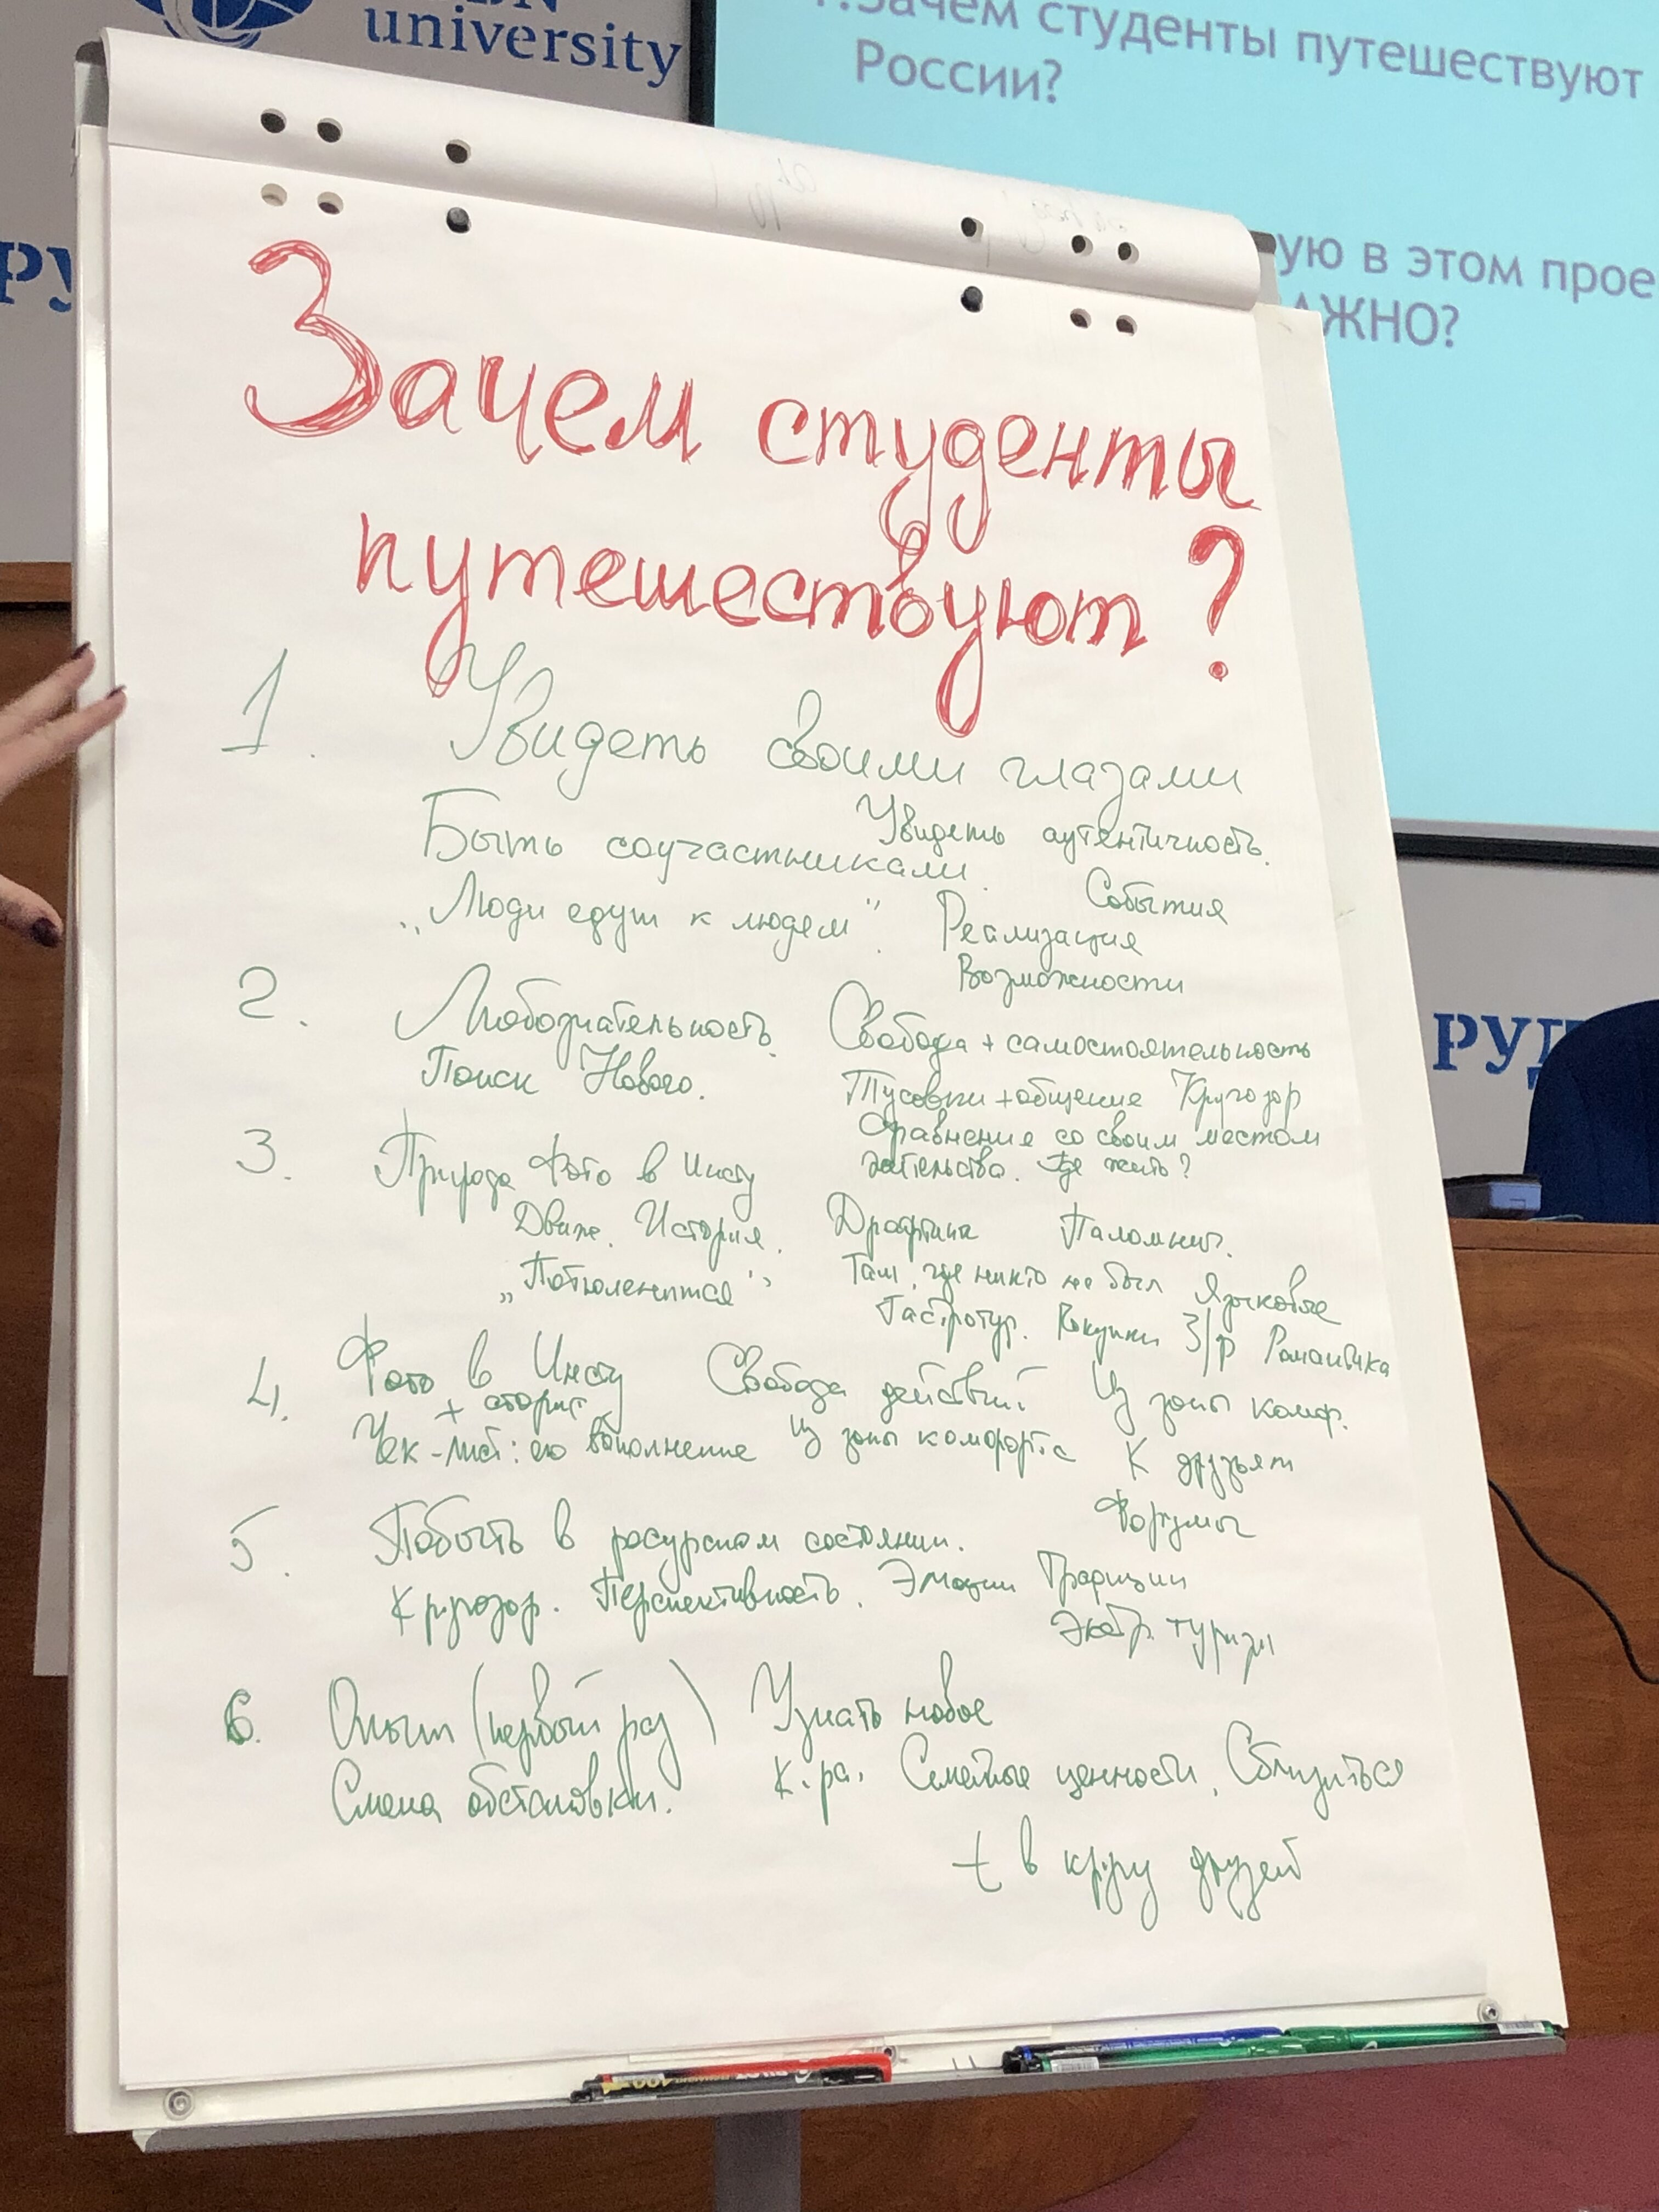 university
Зачем студенты путешествуют
России?
РУ
ую в этом прое
АЖНО?
Зачем студенты
путешествуют?
1. Увидеть своими глазами
Быть соучастниками. Увидеть аутентичность.
„Люди едут к людям". События
Реализация
Возможности
2. Любознательность. Свобода + самостоятельность
Поиск Нового. Тусовки + общение Кругозор
Сравнение со своим местом
жительства. Где жить?
3. Природа Фото в Инсту
Движ. История. Паломнич.
„Потюленится" Там, где никто не был Языковые
Гастротур. Покупки З/р Романтика
4. Фото в Инсту Свобода действий Из зоны комф.
+ сторис
Чек-лист: его выполнение Из зоны комфорта К друзьям
Форумы
5. Побыть в ресурсном состоянии.
Кругозор. Перспективность. Эмоции Традиции
туризм
6. Опыт (первый раз) Узнать новое
Смена обстановки. К.ра. Семейные ценности. Сблизиться
t в кругу друзей
РУД